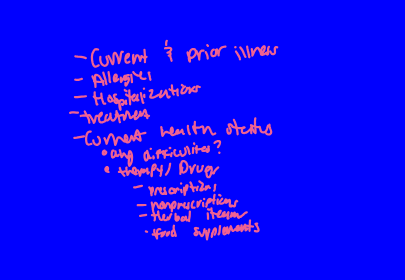 - Current & prior illness
- Allergies
- Hospitalizations
- treatment
- Current health status
• any difficulites?
• therapy/ Drugs
- prescriptions
- nonprescriptions
- Herbal items
• food supplements